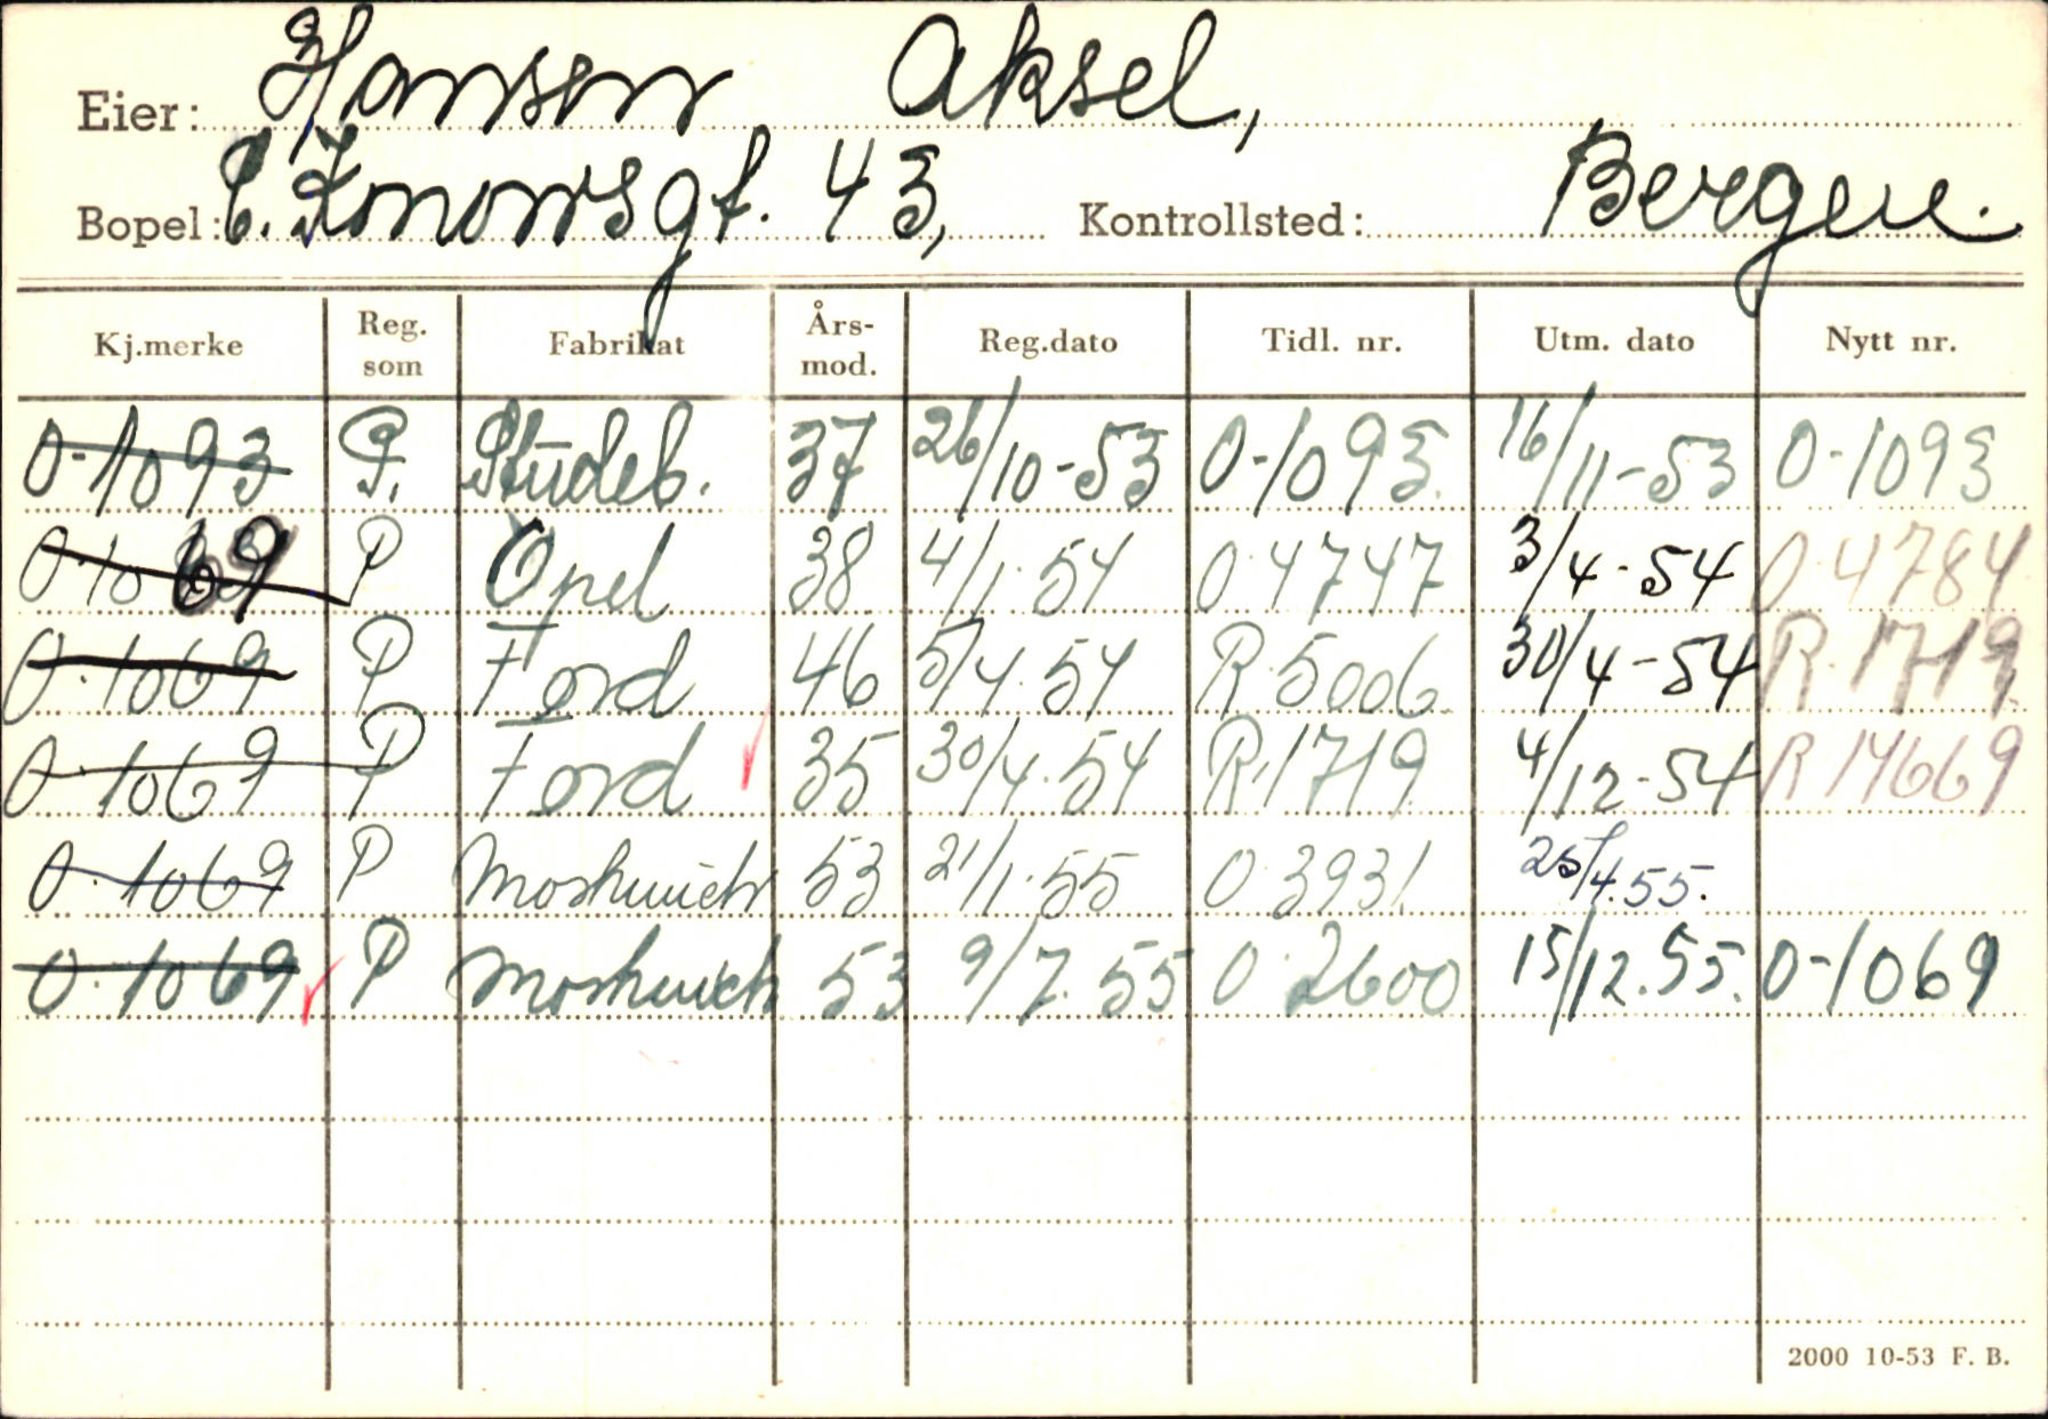 Eier: Hansen Aksel,
Bopel: C. Knowsgt. 43, Kontrollsted: Bergen.
Kj.merke Reg. som Fabrikat Års- mod. Reg.dato Tidl. nr. Utm. dato Nytt nr.
O-1093 P. Studeb. 37 26/10-53 O-1093. 16/11-53 O-1093
O-1069 P Opel 38 4/1-54 O-4747 3/4-54 O-4784
O-1069 P Ford 46 5/4-54 R-5006 30/4-54 R-1719
O-1069 P Ford 35 30/4-54 R-1719 4/12-54 R 14669
O-1069 P Moskwich 53 21/1-55 O-3931 25/4.55.
O-1069 P Moskwich 53 9/7-55 O-2600 15/12.55. O-1069
2000 10-53 F. B.